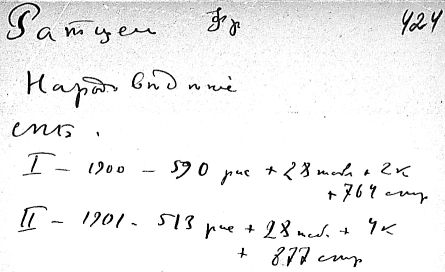 Ратцель Фр 424
Народовѣдѣніе
СПБ.
I – 1900 – 590 рис + 28 табл + 2 к
+ 764 стр
II – 1901 – 513 рис + 28 таб. + 4 к
+ 877 стр